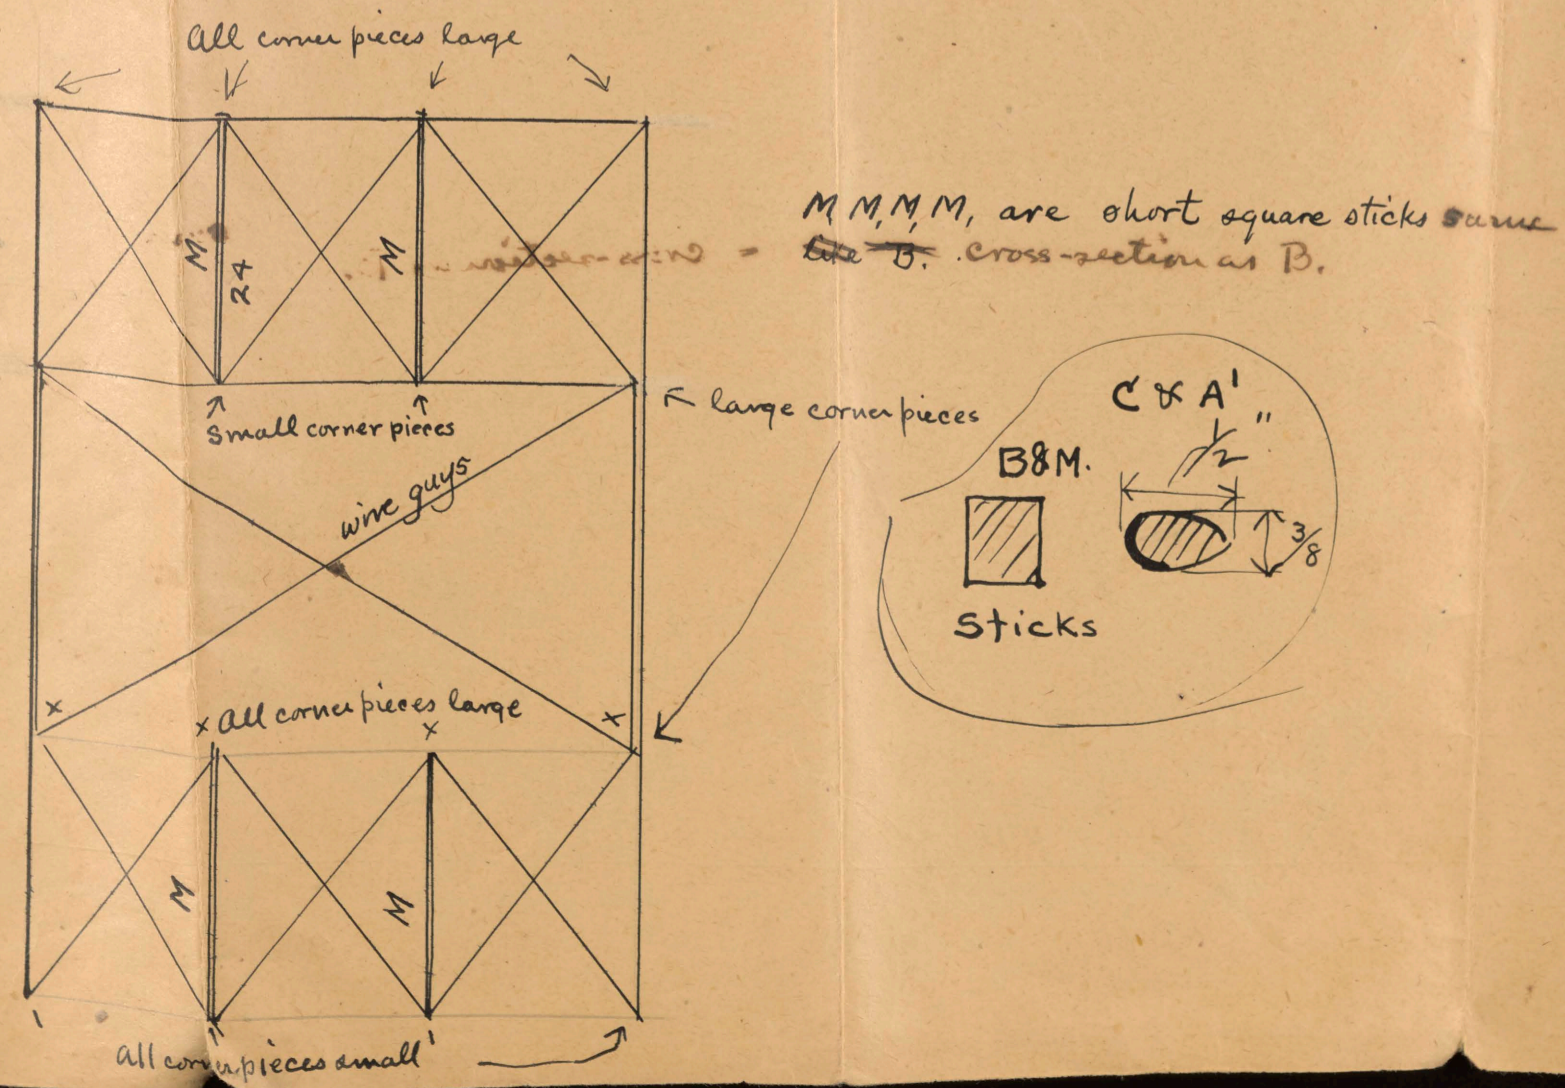 All corner pieces large
M
24
M
M, M, M, M, are short square sticks same
like B. cross-section as B.
small corner pieces
large corner pieces
wire guys
C & A'
1/2"
B&M.
3/8
Sticks
x
x All corner pieces large
x
x
M
M
All corner pieces small